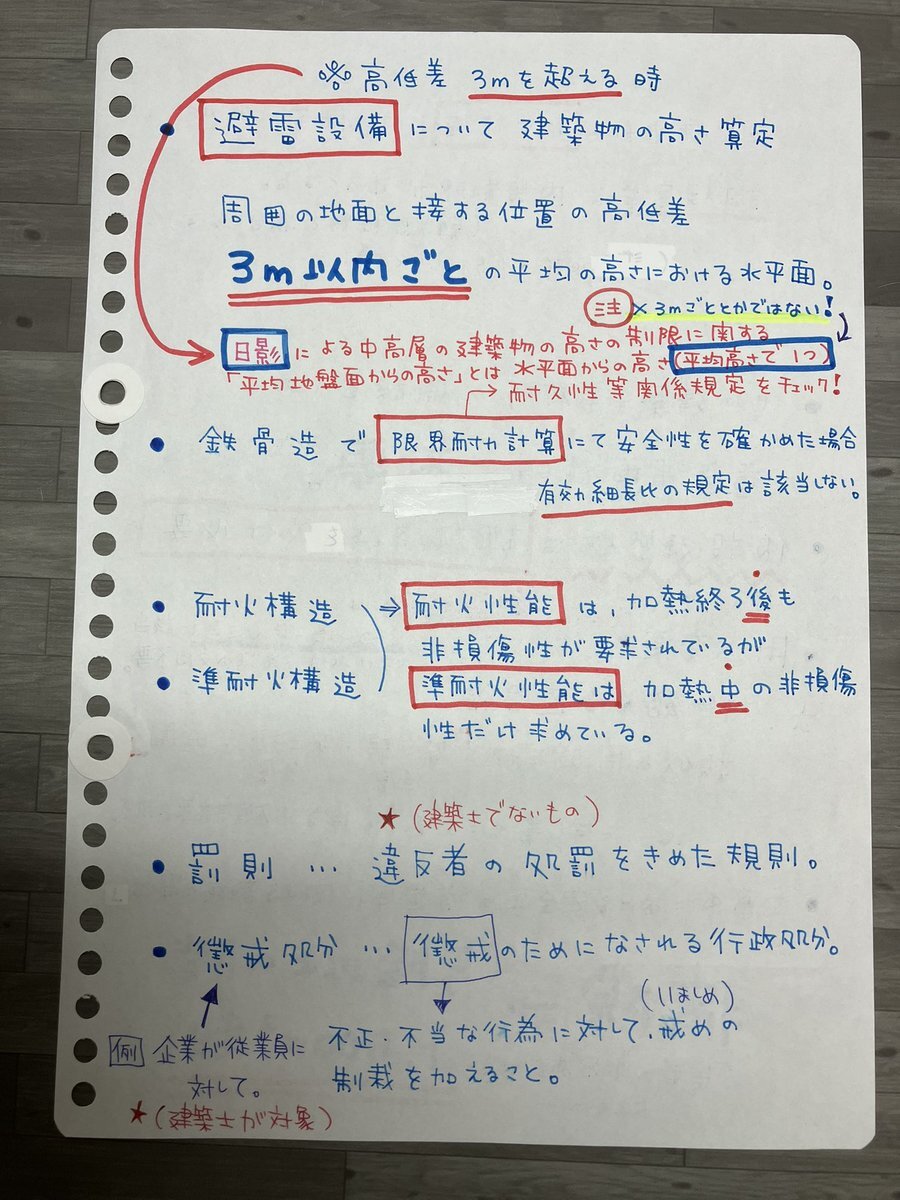 ※高低差 3mを超える時
• 避雷設備 について 建築物の高さ算定
周囲の地面と接する位置の高低差
3m以内ごと の平均の高さにおける水平面。
注 × 3mごととかではない!
日影 による中高層の建築物の高さの制限に関する
「平均地盤面からの高さ」とは 水平面からの高さ(平均高さで1つ)
→耐久性等関係規定をチェック!
• 鉄骨造で 限界耐力計算 にて安全性を確かめた場合
有効細長比の規定は該当しない。
• 耐火構造 ⇒ 耐火性能 は、加熱終了後も
非損傷性が要求されているが
• 準耐火構造 準耐火性能は 加熱中の非損傷
性だけ求めている。
★(建築士でないもの)
• 罰則 … 違反者の処罰をきめた規則。
• 懲戒処分 … 懲戒のためになされる行政処分。
(いましめ)
例 企業が従業員に
対して。
不正・不当な行為に対して、戒めの
制裁を加えること。
★(建築士が対象)